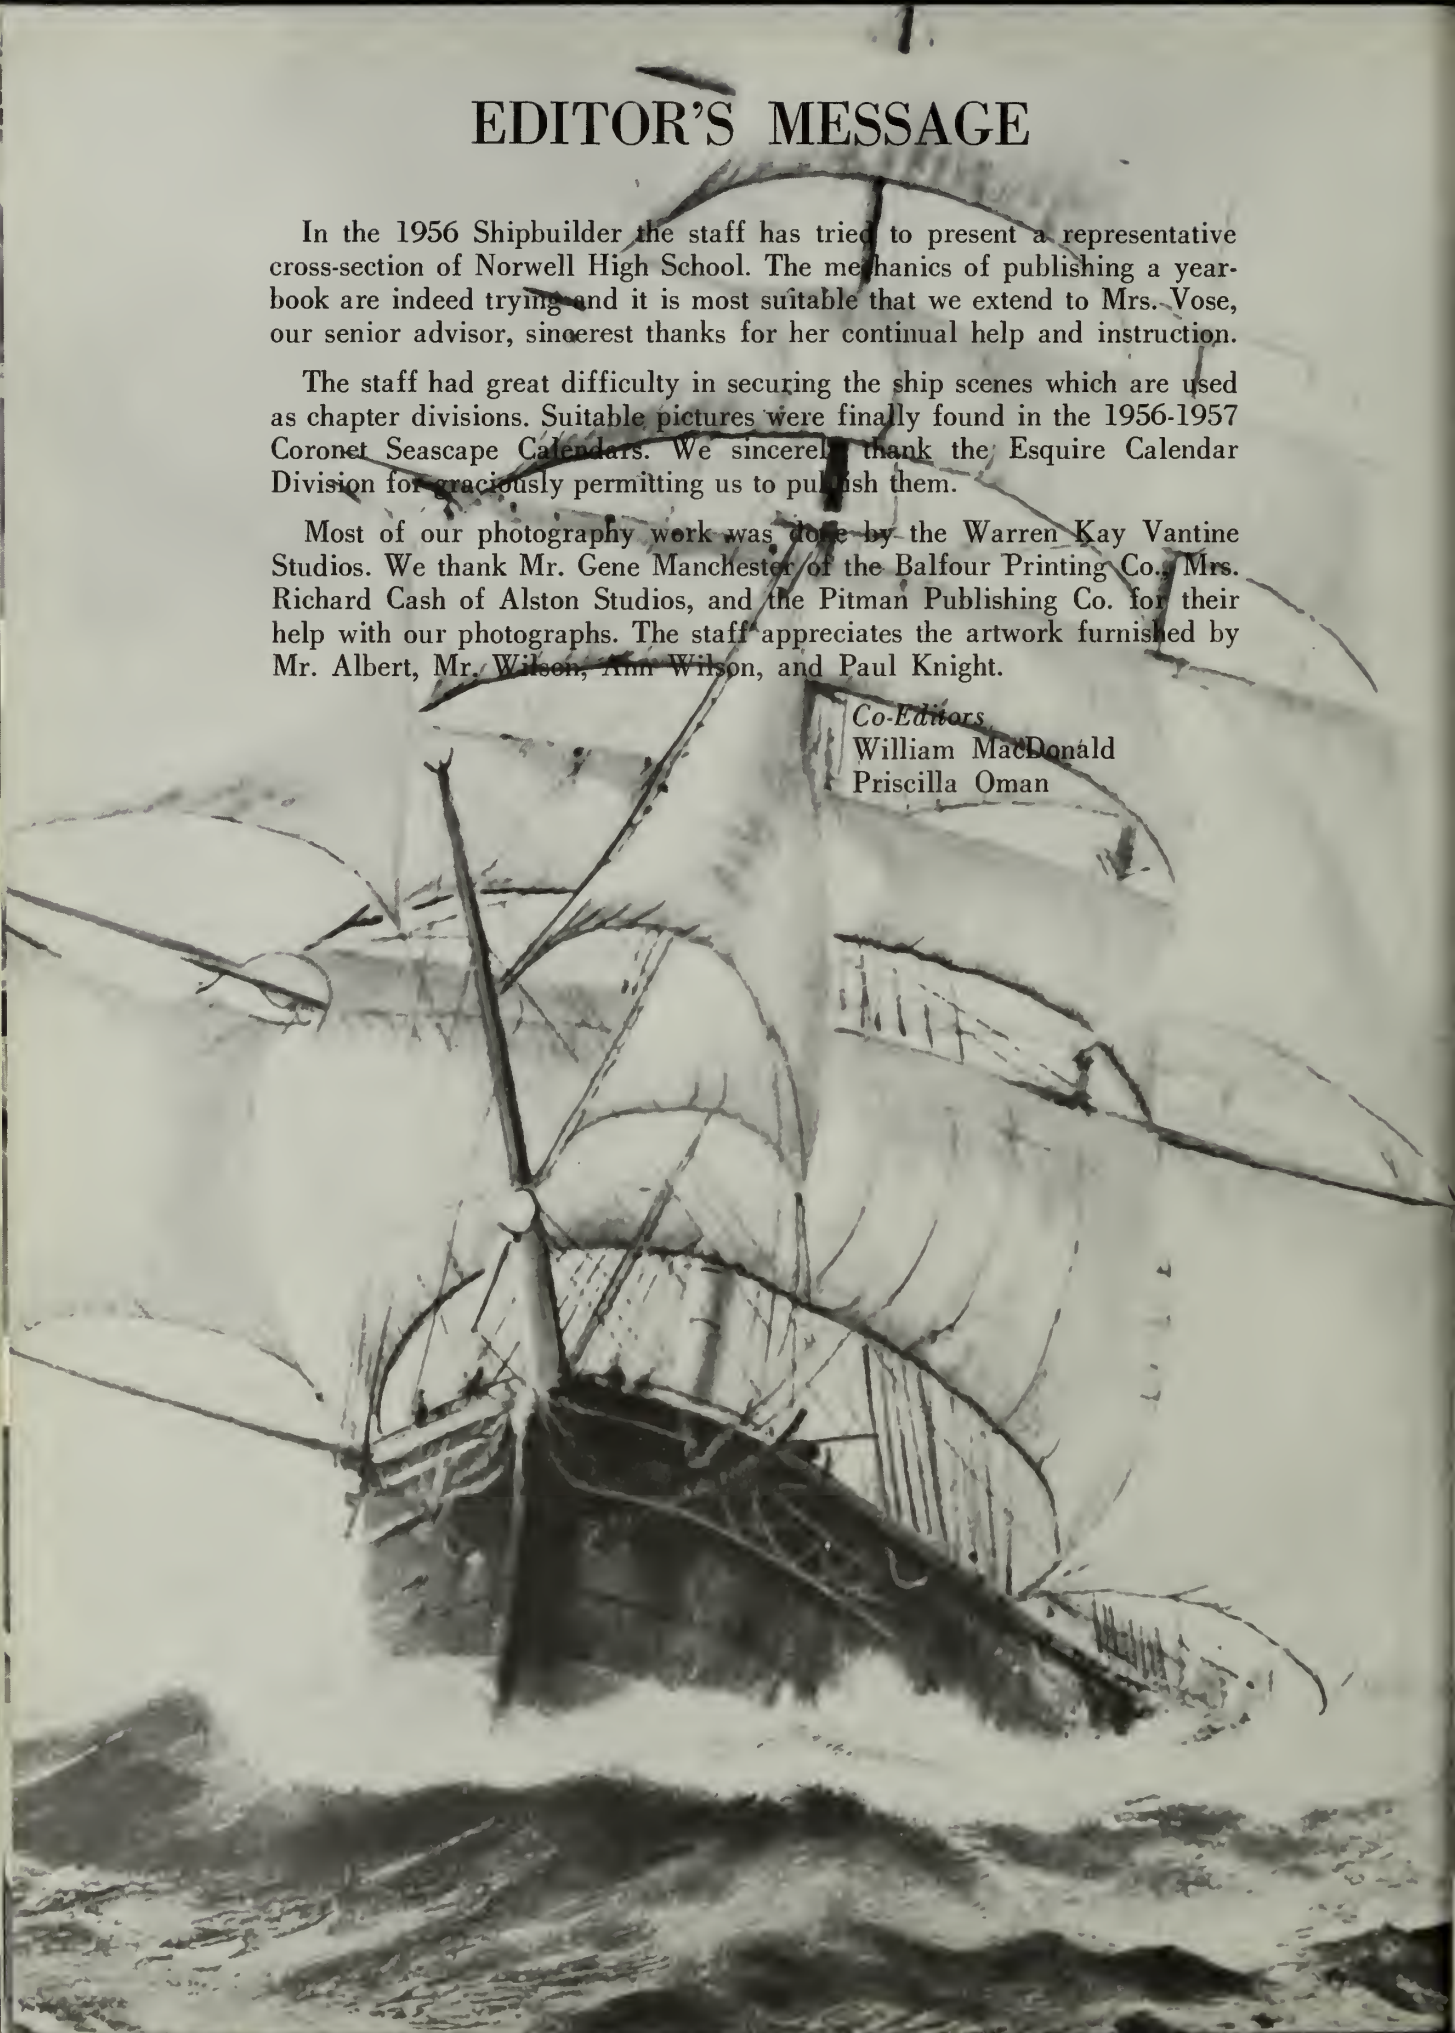 EDITOR'S MESSAGE
In the 1956 Shipbuilder the staff has tried to present a representative
cross-section of Norwell High School. The mechanics of publishing a year-
book are indeed trying and it is most suitable that we extend to Mrs. Vose,
our senior advisor, sincerest thanks for her continual help and instruction.
The staff had great difficulty in securing the ship scenes which are used
as chapter divisions. Suitable pictures were finally found in the 1956-1957
Coronet Seascape Calendars. We sincerely thank the Esquire Calendar
Division for graciously permitting us to publish them.
Most of our photography work was done by the Warren Kay Vantine
Studios. We thank Mr. Gene Manchester of the Balfour Printing Co., Mrs.
Richard Cash of Alston Studios, and the Pitman Publishing Co. for their
help with our photographs. The staff appreciates the artwork furnished by
Mr. Albert, Mr. Wilson, Ann Wilson, and Paul Knight.
Co-Editors
William MacDonald
Priscilla Oman